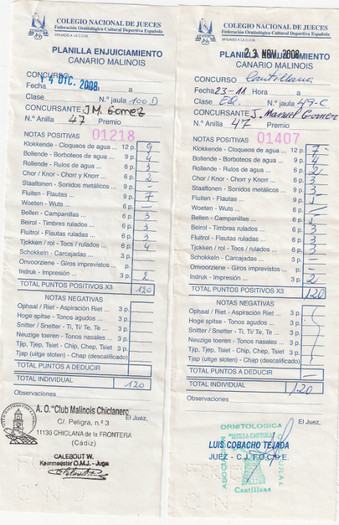 COLEGIO NACIONAL DE JUECES
Federación Ornitológica Cultural Deportiva Española
PLANILLA ENJUICIAMIENTO
CANARIO MALINOIS
CONCURSO
14 DIC. 2008
Fecha a
Clase Nº jaula 100 D
CONCURSANTE J.M. Gomez
Nº Anilla 47 Premio
NOTAS POSITIVAS 01218
Klokkende - Cloqueos de agua ... 12 p. 9
Bollende - Borboteos de agua ... 9 p. 4
Rollende - Rulos de agua ... 6 p. 2
Chor / Knor - Chorr y Knorr ... 6 p. 2
Staaltonen - Sonidos metálicos ... 9 p. –
Fluiten - Flautas ... 9 p. 7
Woeten - Wuts ... 6 p. –
Bellen - Campanillas ... 6 p. 3
Beirol - Timbres rulados ... 6 p. 3
Fluitrol - Flautas ruladas ... 6 p. 3
Tjokken / rol - Tocs / rulados ... 6 p. 4
Schokkelen - Carcajadas ... 3 p.
Onvoorziene - Giros imprevistos ... 6 p. –
Indruk - Impresión ... 3 p. 2
TOTAL PUNTOS POSITIVOS X3 120
NOTAS NEGATIVAS
Ophaal / Riet - Aspiración Riet ... 3 p.
Hoge spitse - Tonos agudos ... 3 p.
Snitter / Snetter - Ti, Ti/ Te, Te ... 3 p.
Neuzige toeren - Tonos nasales ... 3 p.
Tjip, Tjep, Tsiet - Chip, Chep, Tsiet 3 p.
Tjap (uitge sloten) - Chap (descalificado)
TOTAL PUNTOS A DEDUCIR
TOTAL INDIVIDUAL 120
Observaciones
El Juez,
A. O. "Club Malinois Chiclanero"
C/. Peligra, n.º 3
11130 CHICLANA de la FRONTERA
(Cádiz)
CALEBOUT W.
Keurmeester O.M.J. - Juge
COLEGIO NACIONAL DE JUECES
Federación Ornitológica Cultural Deportiva Española
PLANILLA ENJUICIAMIENTO
23 NOV. 2008
CANARIO MALINOIS
CONCURSO Cantillana
Fecha 23-11 a
Clase EQ. Nº jaula 49-C
CONCURSANTE J. Manuel Gomez
Nº Anilla 47 Premio
NOTAS POSITIVAS 01407
Klokkende - Cloqueos de agua ... 12 p. 7
Bollende - Borboteos de agua ... 9 p. 4
Rollende - Rulos de agua ... 6 p. 2
Chor / Knor - Chorr y Knorr ... 6 p.
Staaltonen - Sonidos metálicos ... 9 p.
Fluiten - Flautas ... 9 p.
Woeten - Wuts ... 6 p.
Bellen - Campanillas ... 6 p.
Beirol - Timbres rulados ... 6 p.
Fluitrol - Flautas ruladas ... 6 p.
Tjokken / rol - Tocs / rulados ... 6 p.
Schokkelen - Carcajadas ... 3 p.
Onvoorziene - Giros imprevistos ... 6 p.
Indruk - Impresión ... 3 p. 2
TOTAL PUNTOS POSITIVOS X3 120
NOTAS NEGATIVAS
Ophaal / Riet - Aspiración Riet ... 3 p.
Hoge spitse - Tonos agudos ... 3 p.
Snitter / Snetter - Ti, Ti/ Te, Te ... 3 p.
Neuzige toeren - Tonos nasales ... 3 p.
Tjip, Tjep, Tsiet - Chip, Chep, Tsiet 3 p.
Tjap (uitge sloten) - Chap (descalificado)
TOTAL PUNTOS A DEDUCIR
TOTAL INDIVIDUAL 120
Observaciones
El Juez,
ORNITOLOGICA
LUIS COBACHO TEJADA
JUEZ - C.J.F.O.C.D.E.
Cantillana